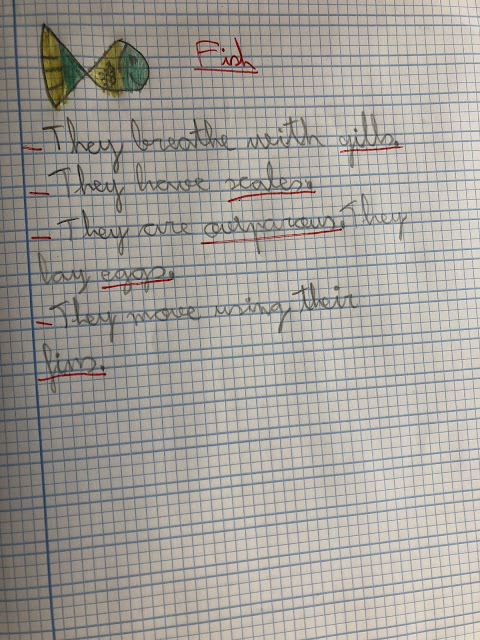 Fish
- They breathe with gills.
- They have scales.
- They are oviparous. They
lay eggs.
- They move using their
fins.